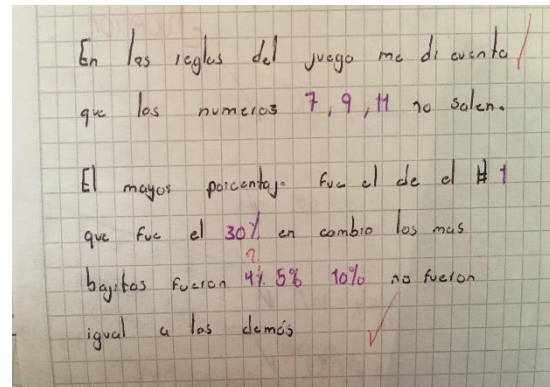 En las reglas del juego me di cuenta
que los numeros 7, 9, 11 no salen.
El mayos porcentaje fue el de el #1
que fue el 30% en cambio los mas
?
bajitos fueron 4% 5% 10% no fueron
igual a los demás